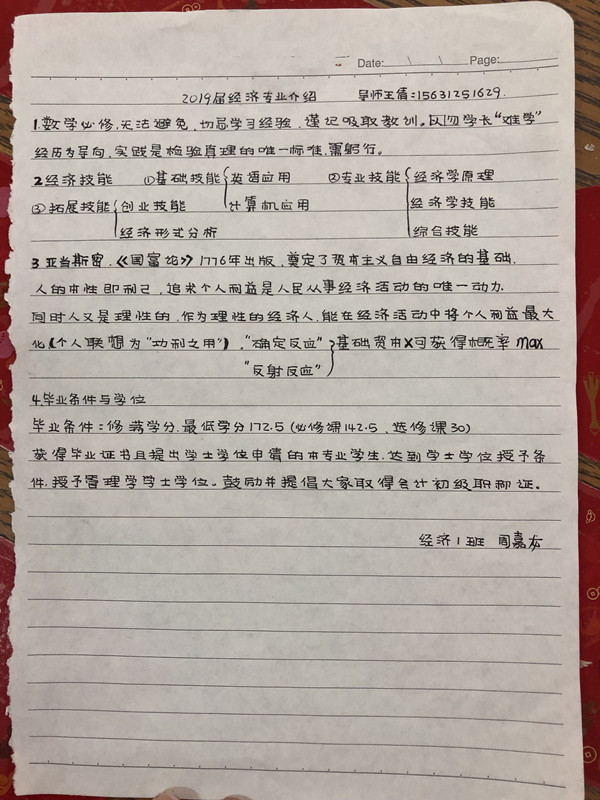 Date: \ \ Page:
2019届经济专业介绍 导师王倩:15631251629.
1.数学必修,无法避免,切忌学习经验,谨记吸取教训。以勿学长“难学”
经历为导向,实践是检验真理的唯一标准,需躬行。
2经济技能 ①基础技能{英语应用 ②专业技能{经济学原理
③拓展技能{创业技能 计算机应用 经济学技能
经济形式分析 综合技能
3.亚当斯密.《国富论》1776年出版,奠定了资本主义自由经济的基础.
人的本性即利己,追求个人利益是人民从事经济活动的唯一动力.
同时人又是理性的,作为理性的经济人,能在经济活动中将个人利益最大
化(个人联想为“功利之用”).“确定反应”}基础资本X可获得概率max
“反射反应”
4.毕业条件与学位
毕业条件:修满学分.最低学分172.5(必修课142.5、选修课30)
获得毕业证书且提出学士学位申请的本专业学生,达到学士学位授予条
件,授予管理学学士学位。鼓励并提倡大家取得会计初级职称证。
经济1班 周嘉